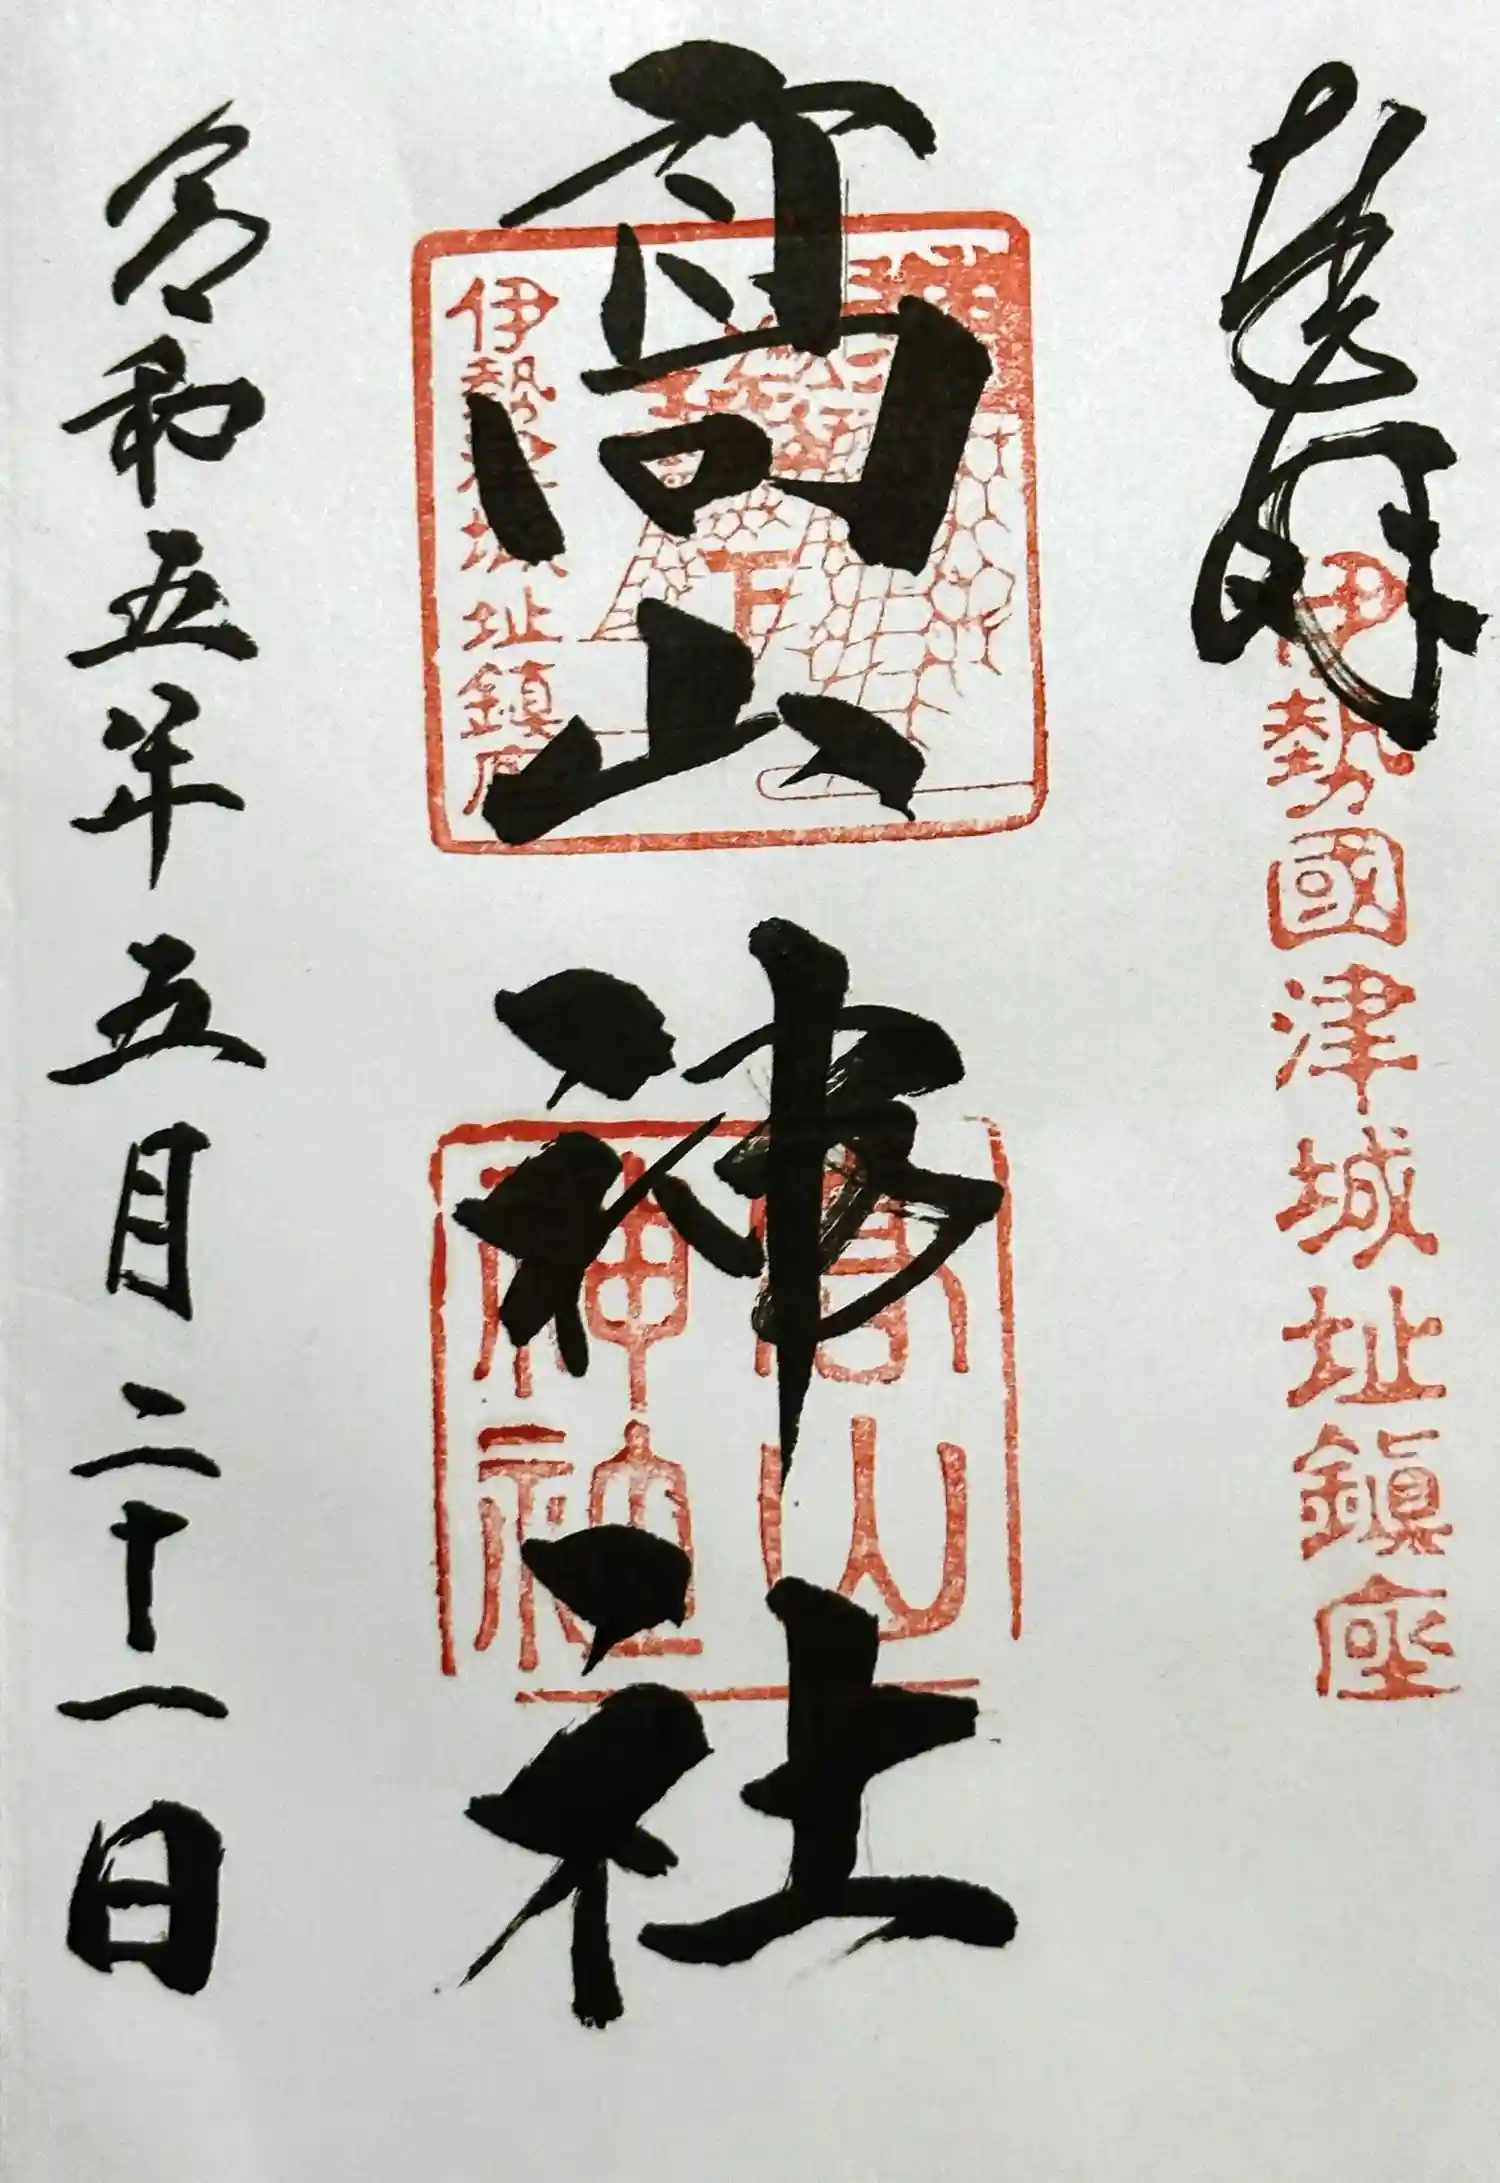 奉拝
伊勢國津城址鎮座
高山神社
高山
神社
伊勢津城址鎮座
令和五年五月二十一日